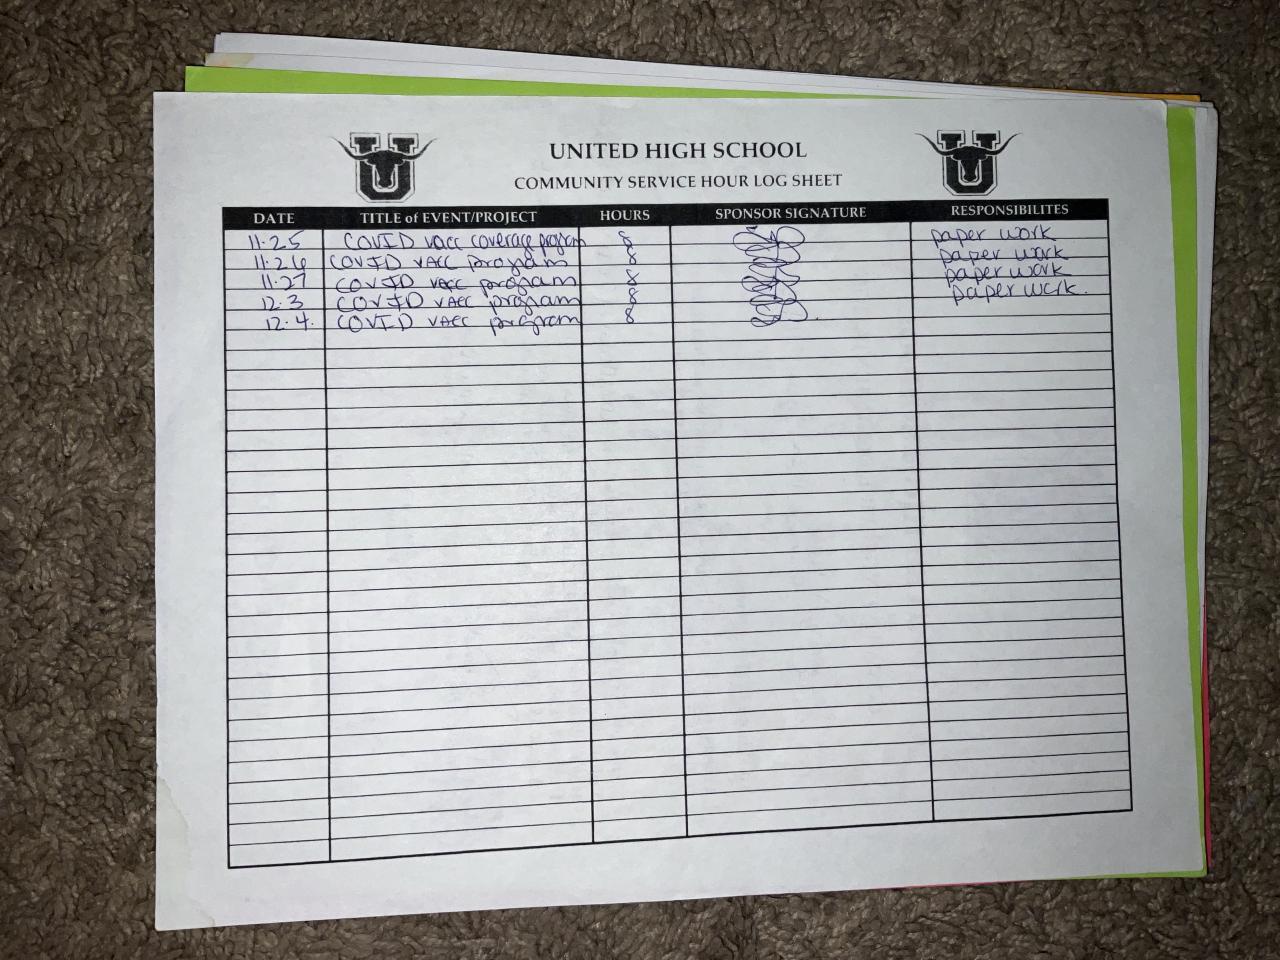 U U
UNITED HIGH SCHOOL
COMMUNITY SERVICE HOUR LOG SHEET
DATE TITLE of EVENT/PROJECT HOURS SPONSOR SIGNATURE RESPONSIBILITES
11.25 COVID vacc coverage program 8 paper work
11.26 COVID vacc program 8 paper work
11.27 COVID vacc program 8 paper work
12.3 COVID vacc program 8 paper work.
12.4. COVID vacc program 8